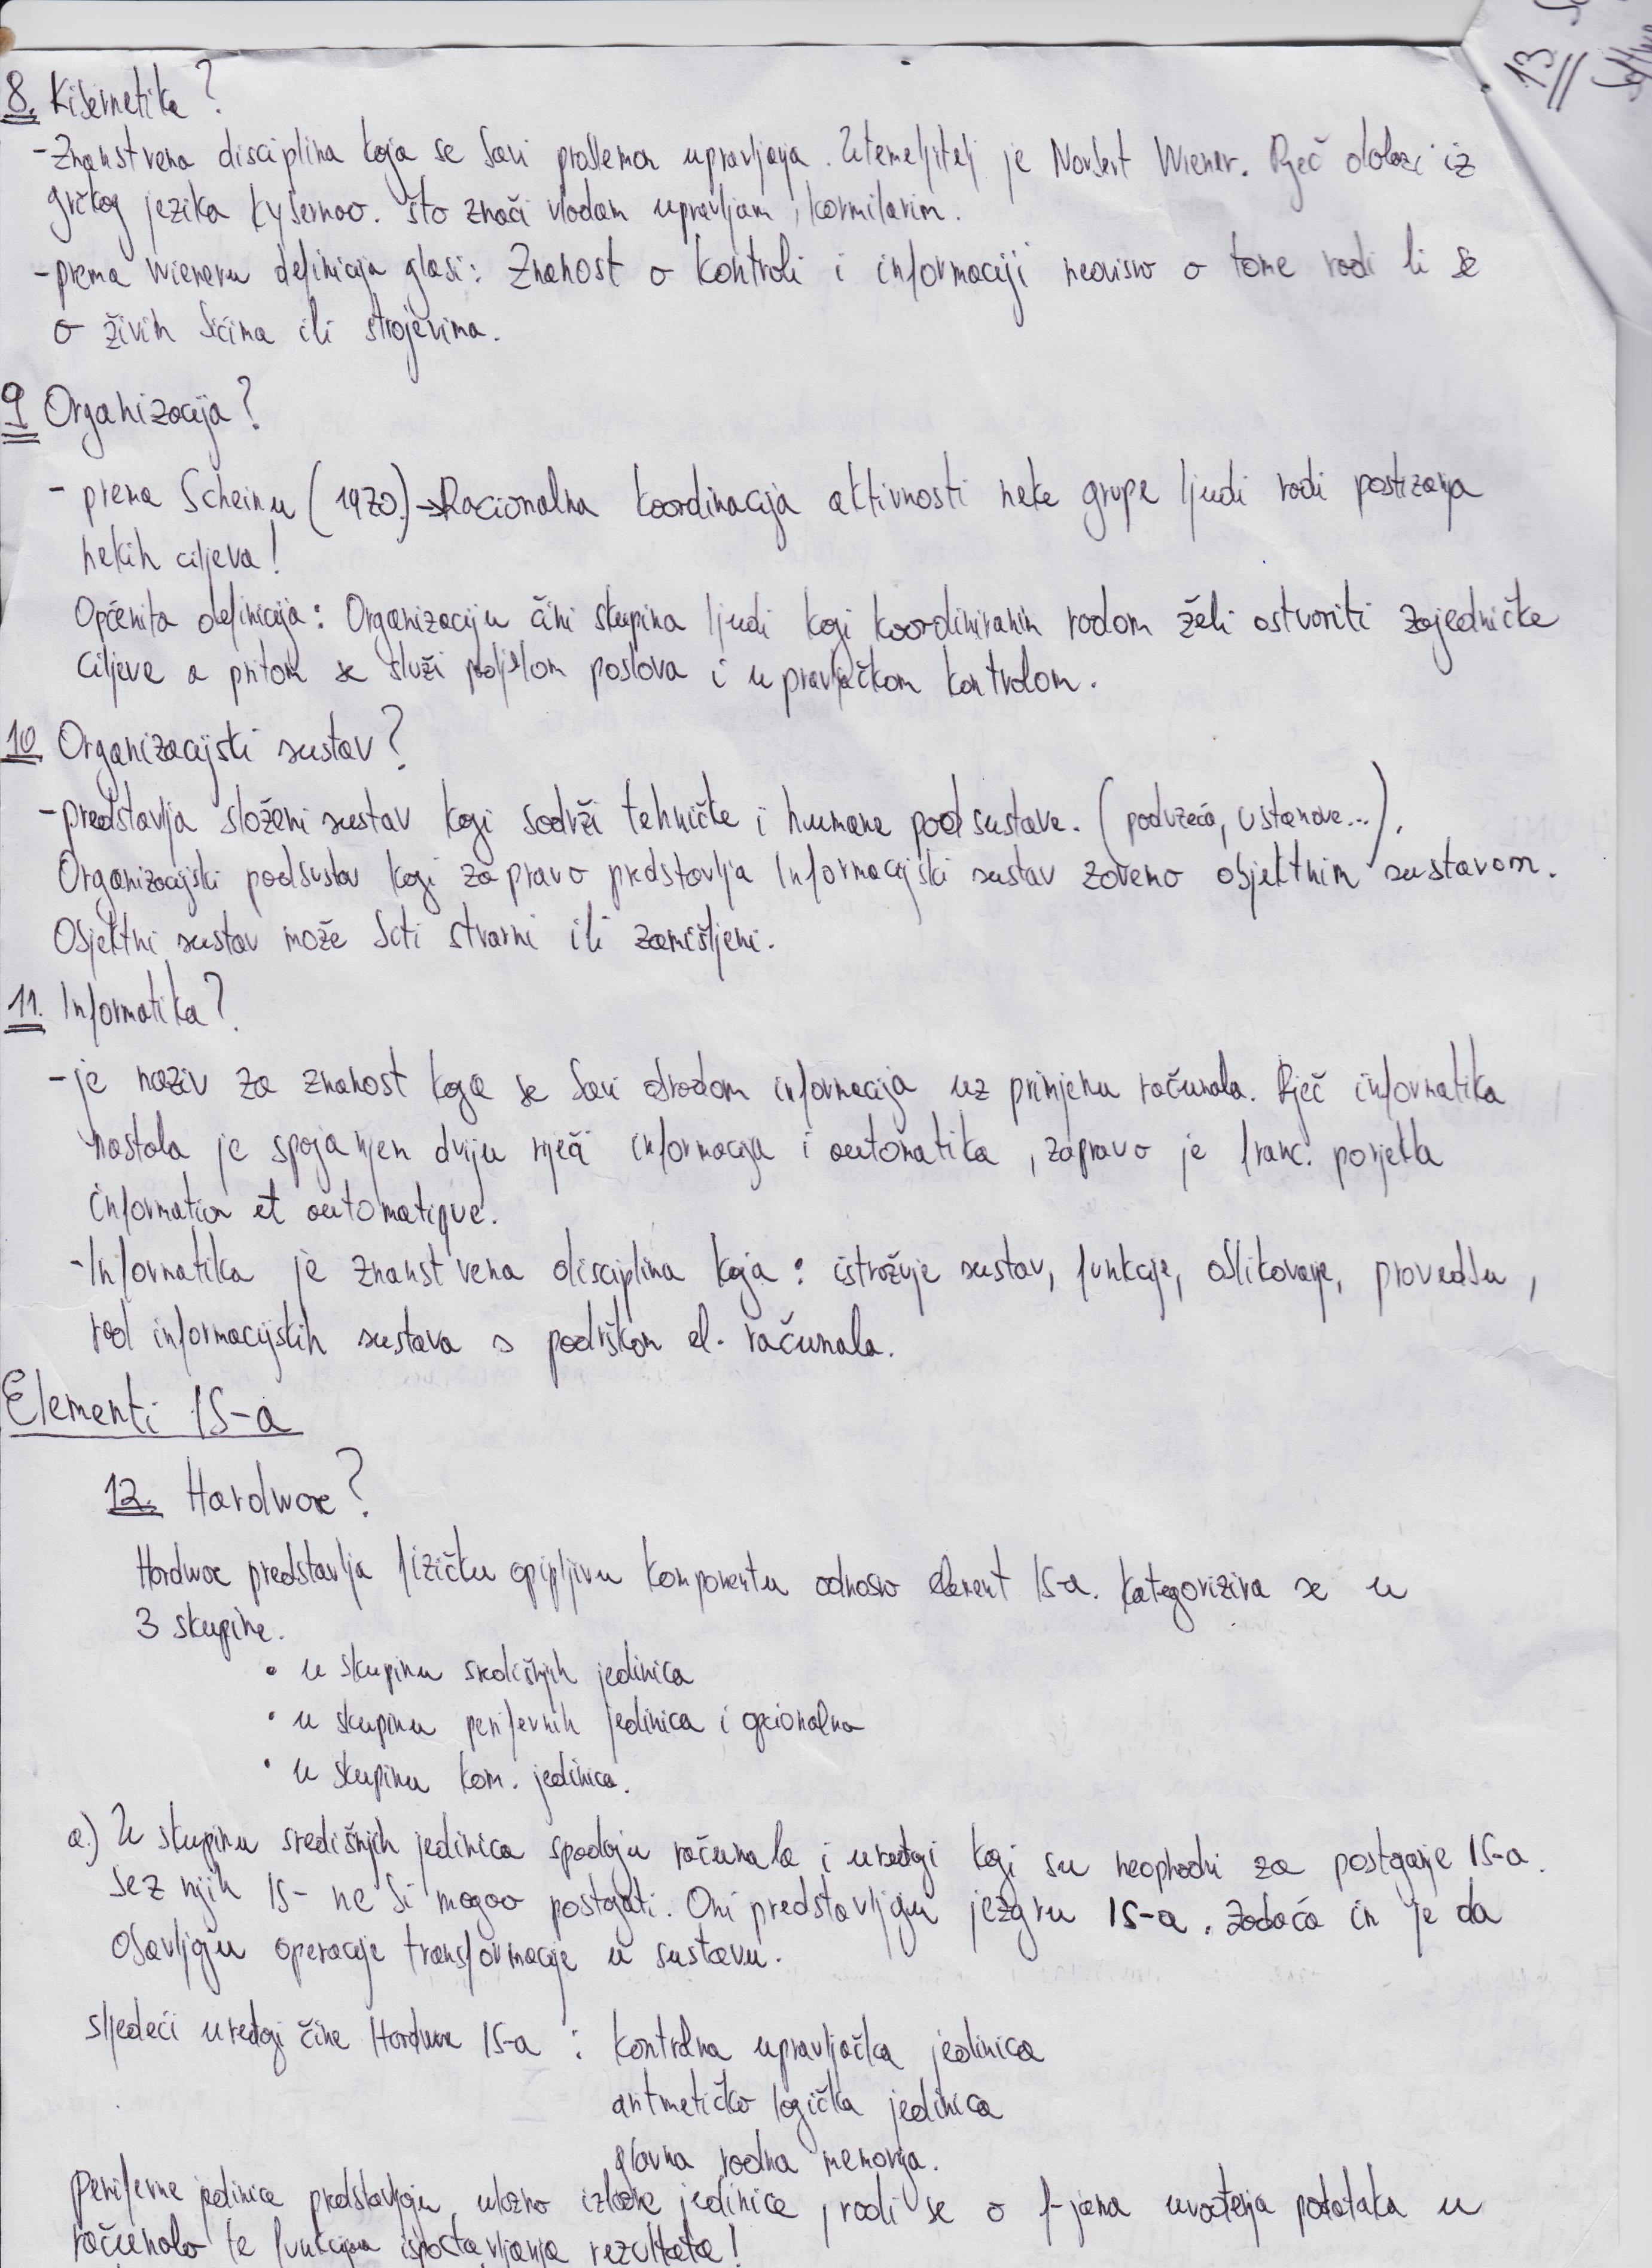 13 So
Softwa
8. Kibernetika?
- Znanstvena disciplina koja se bavi problemom upravljanja. Utemeljitelj je Norbert Wiener. Riječ dolazi iz
grčkog jezika kybernao. što znači vladam upravljam, kormilarim.
- prema Wieneru definicija glasi: Znanost o kontroli i informaciji neovisno o tome radi li se
o živih bićima ili strojevima.
9 Organizacija?
- prema Scheinu (1970.) → Racionalna koordinacija aktivnosti neke grupe ljudi radi postizanja
nekih ciljeva!
Općenita definicija: Organizaciju čini skupina ljudi koji koordiniranim radom želi ostvariti zajedničke
ciljeve a pritom se služi podjelom poslova i upravljačkom kontrolom.
10 Organizacijski sustav?
- predstavlja složeni sustav koji sadrži tehničke i humane podsustave. (poduzeća, ustanove...).
Organizacijski podsustav koji zapravo predstavlja Informacijski sustav zovemo objektnim sustavom.
Objektni sustav može biti stvarni ili zamišljeni.
11. Informatika?
- je naziv za znanost koja se bavi obradom informacija uz primjenu računala. Riječ informatika
nastala je spajanjem dviju riječi informacija i automatika, zapravo je franc. porjekla
information et automatique.
- Informatika je znanstvena disciplina koja: istražuje sustav, funkcije, oblikovanje, provedbu,
rad informacijskih sustava s podrškom el. računala.
Elementi IS-a
12. Hardware?
Hardware predstavlja fizičku opipljivu komponentu odnosno element IS-a. Kategorizira se u
3 skupine.
• u skupinu središnjih jedinica
• u skupinu perifernih jedinica i opcionalna
• u skupinu kom. jedinica.
a.) U skupinu središnjih jedinica spadaju računala i uređaji koji su neophodni za postojanje IS-a.
bez njih IS- ne bi mogao postojati. Oni predstavljaju jezgru IS-a. Zadaća im je da
obavljaju operacije transformacije u sustavu.
sljedeći uređaji čine Hardware IS-a : kontrolna upravljačka jedinica
aritmetičko logička jedinica
glavna radna memorija.
Periferne jedinice predstavljaju ulazno izlazne jedinice, radi se o f-jama uvođenja podataka u
računalo te funkcijama ispostavljanja rezultata!